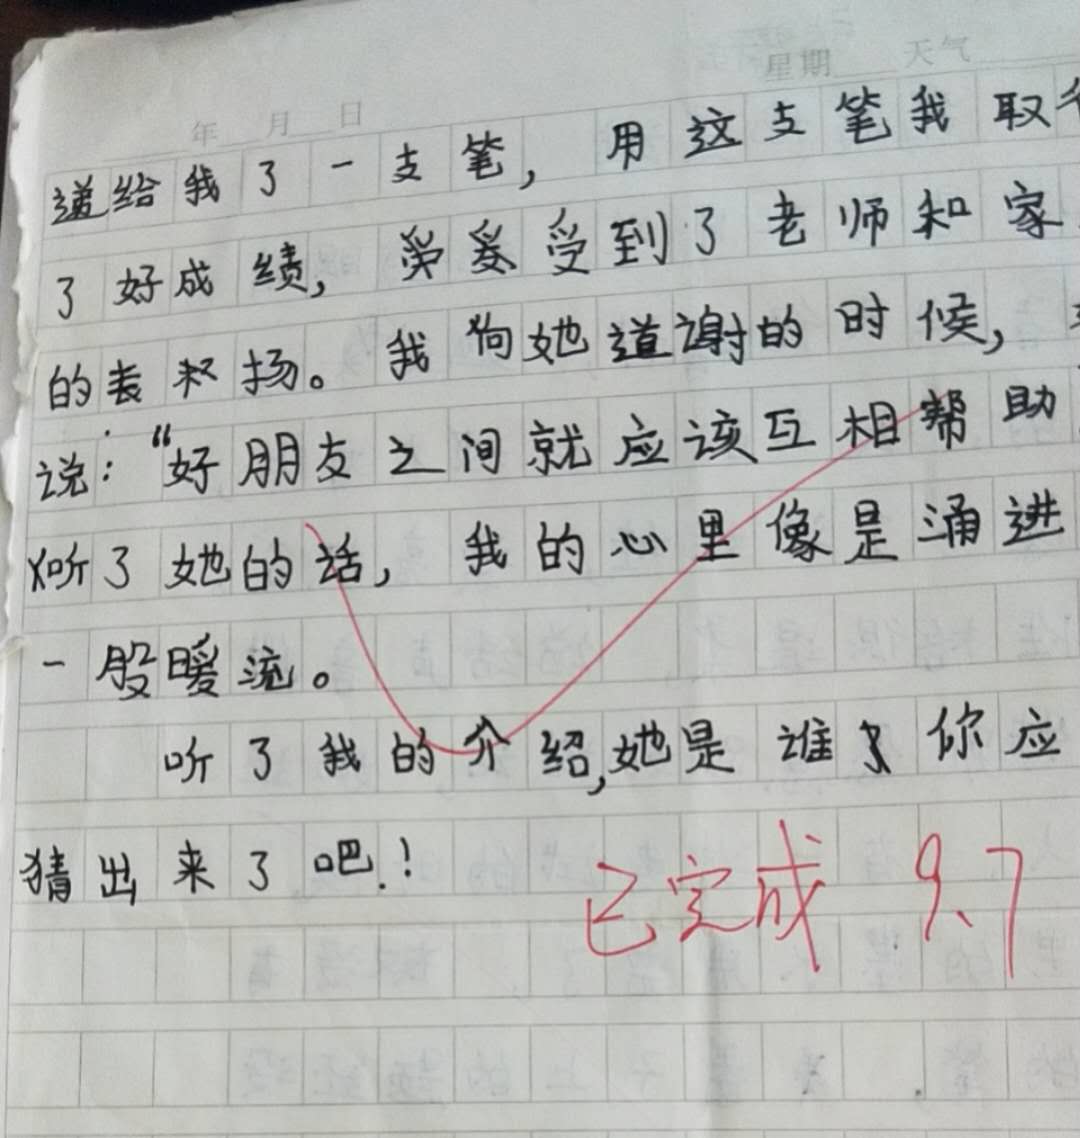 年 月 日 星期 天气
递给我了一支笔，用这支笔我取
了好成绩，受到了老师和家
的表扬。我向她道谢的时候，
说：“好朋友之间就应该互相帮助
听了她的话，我的心里像是涌进
一股暖流。
听了我的介绍，她是谁，你应
猜出来了吧！
已完成 9.7